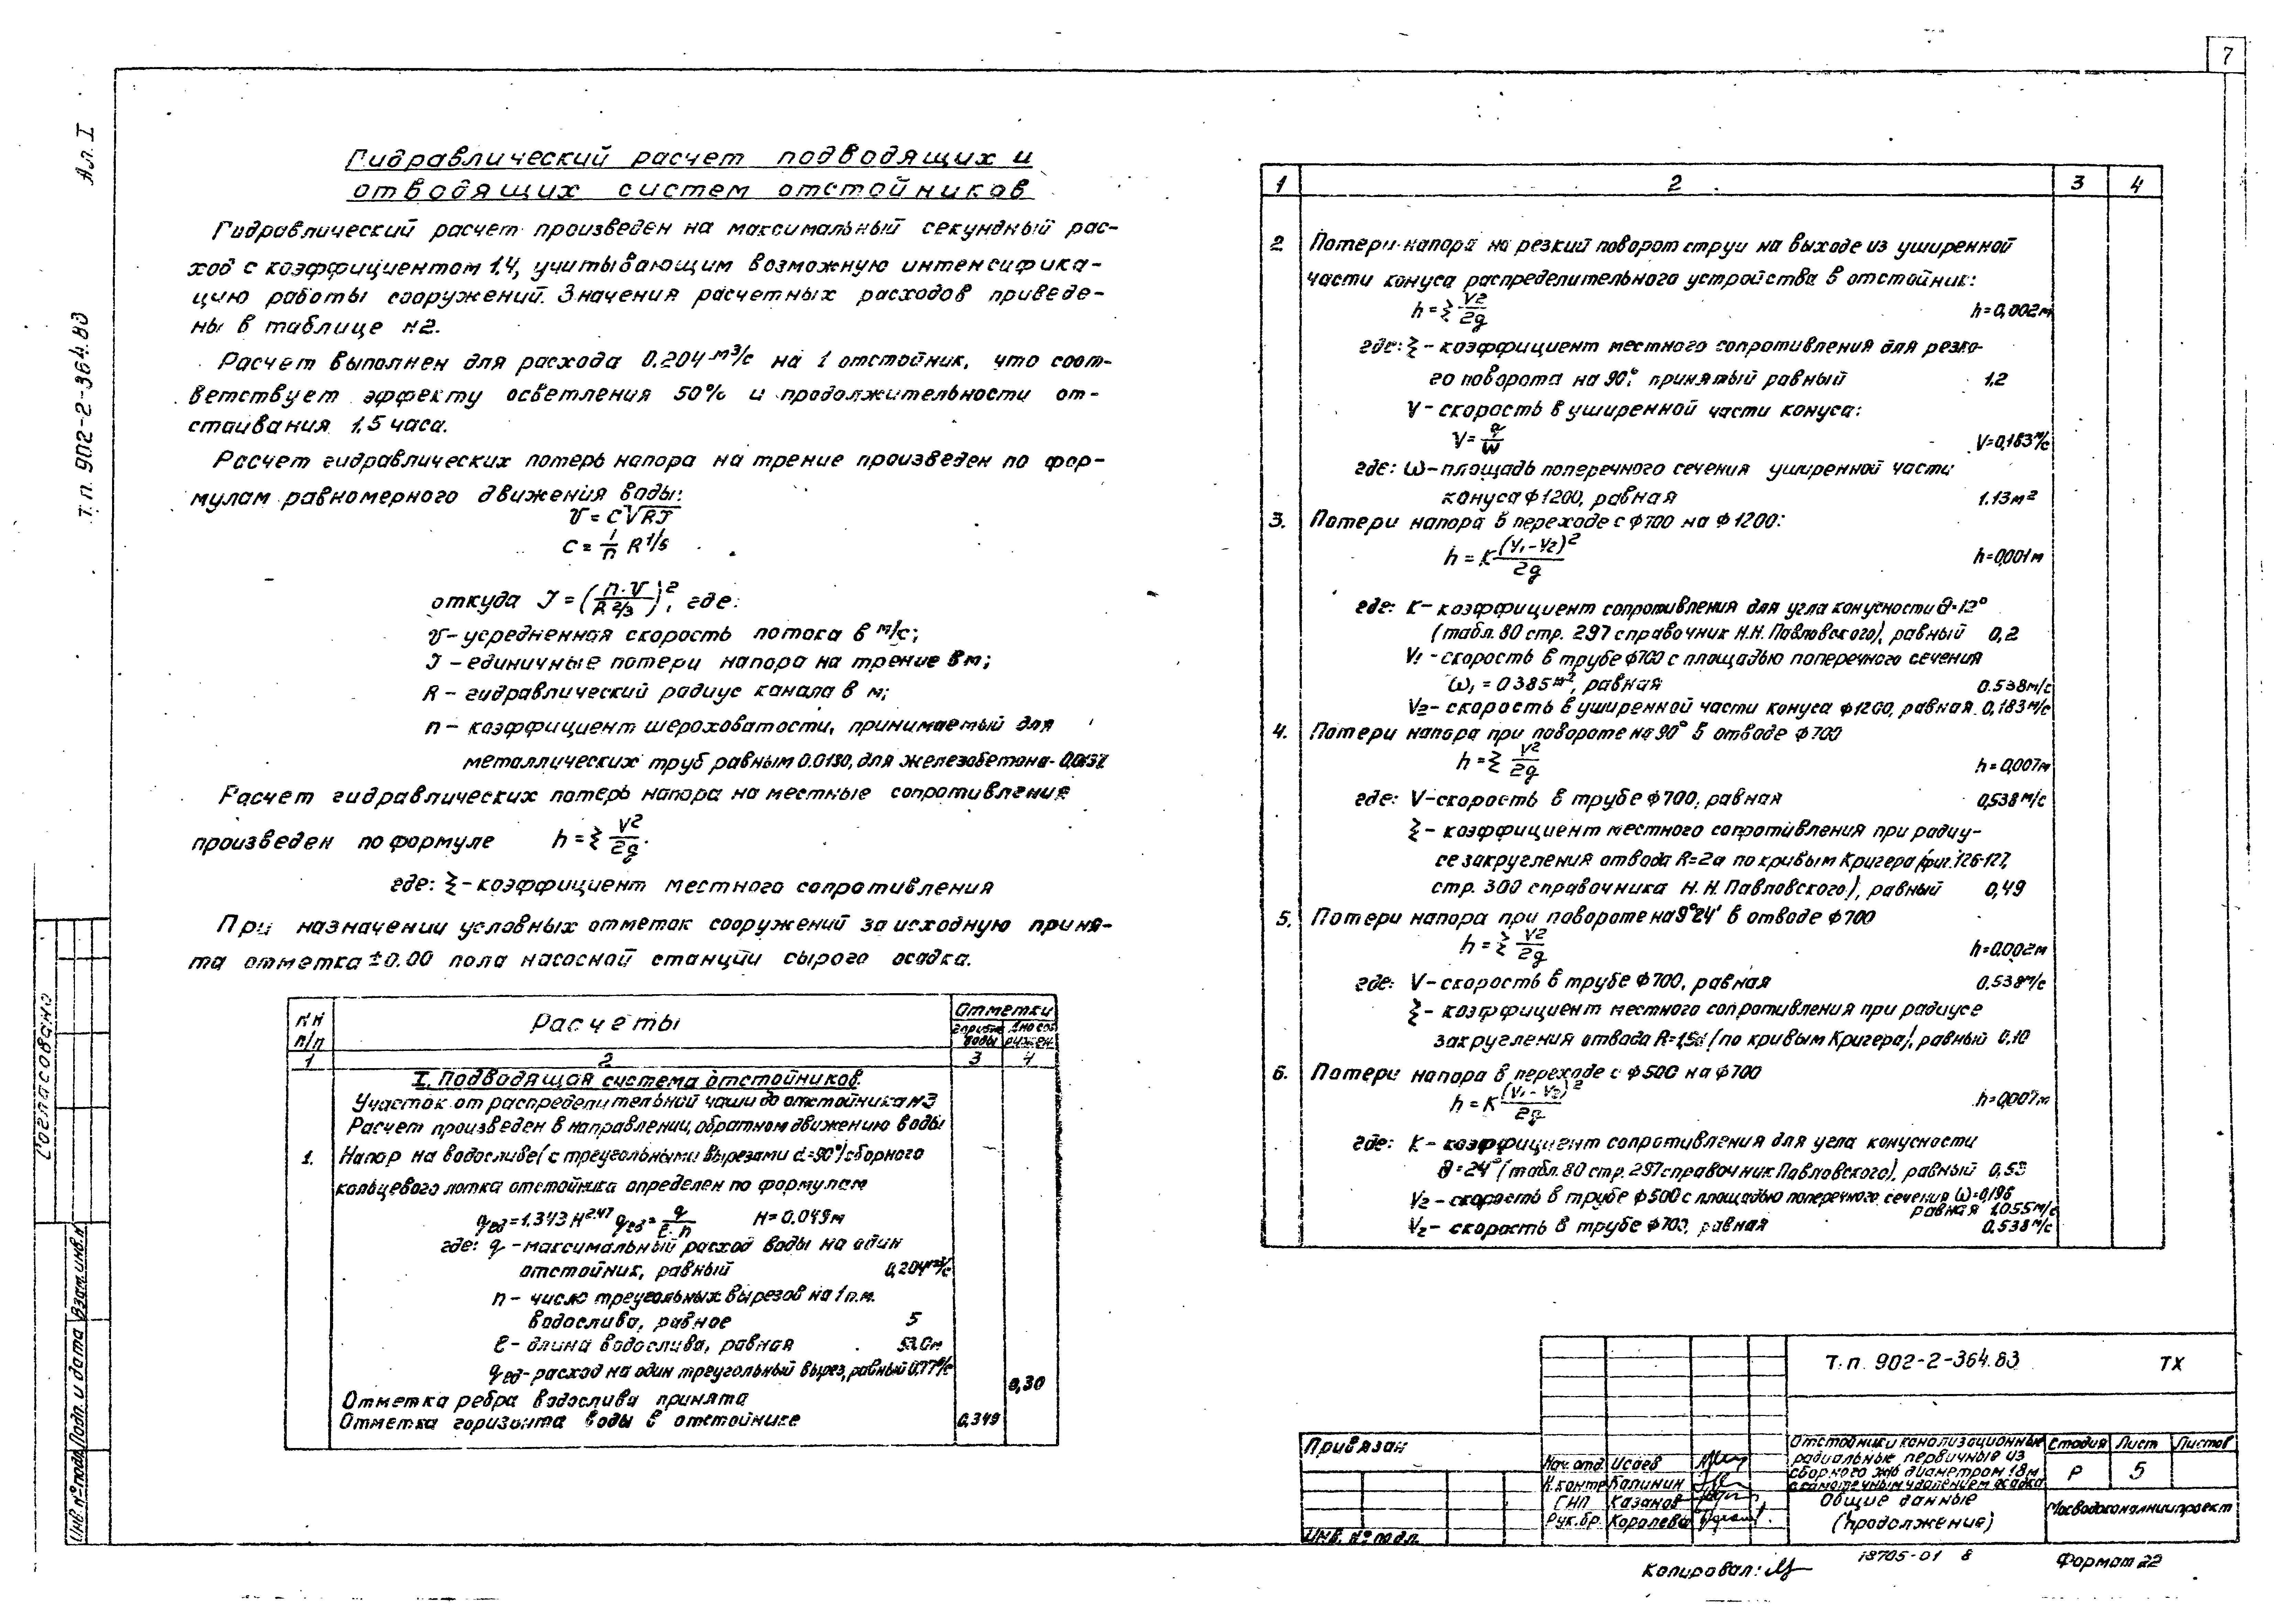 7
Ал. I
т.п. 902-2-364.83
Гидравлический расчет подводящих и
отводящих систем отстойников
Гидравлический расчет произведен на максимальный секундный рас-
ход с коэффициентом 1.4, учитывающим возможную интенсифика-
цию работы сооружений. Значения расчетных расходов приведе-
ны в таблице н2.
Расчет выполнен для расхода 0.204 м³/с на 1 отстойник, что соот-
ветствует эффекту осветления 50% и продолжительности от-
стаивания 1.5 часа.
Расчет гидравлических потерь напора на трение произведен по фор-
мулам равномерного движения воды:
v = C√RJ
C = 1/n R 1/6
откуда J = (n·v / R 2/3)², где:
v - усредненная скорость потока в м/с;
J - единичные потери напора на трение в м;
R - гидравлический радиус канала в м;
n - коэффициент шероховатости, принимаемый для
металлических труб равным 0.0130, для железобетона - 0,0137
Расчет гидравлических потерь напора на местные сопротивления
произведен по формуле h = ξ V²/2g.
где: ξ - коэффициент местного сопротивления
При назначении условных отметок сооружений за исходную приня-
та отметка ±0.00 пола насосной станции сырого осадка.
NN п/п Расчеты Отметки
горизон. воды дно соо- ружен.
1 2 3 4
I. Подводящая система отстойников.
Участок от распределительной чаши до отстойника N3
Расчет произведен в направлении, обратном движению воды
1. Напор на водосливе (с треугольными вырезами d=90°) сборного
кольцевого лотка отстойника определен по формулам
qед = 1.343 H2.47 qед = q/ℓ·n H = 0.049м
где: q - максимальный расход воды на один
отстойник, равный 0,204м³/с
n - число треугольных вырезов на 1 п.м.
водослива, равное 5
ℓ - длина водослива, равная 53.0м
qед - расход на один треугольный вырез, равный 0,77л/с
Отметка ребра водослива принята 0,30
Отметка горизонта воды в отстойнике 0.349
1 2 3 4
2. Потери напора на резкий поворот струи на выходе из уширенной
части конуса распределительного устройства в отстойник:
h = ξ V²/2g h=0,002м
где: ξ - коэффициент местного сопротивления для резко-
го поворота на 90°, принятый равный 1,2
V - скорость в уширенной части конуса:
V = q/W V=0,183м/с
где: ω - площадь поперечного сечения уширенной части
конуса ф1200, равная 1.13м²
3. Потери напора в переходе с ф700 на ф1200:
h = K (V₁-V₂)²/2g h=0,001м
где: K - коэффициент сопротивления для угла конусности θ=12°
(табл. 80 стр. 297 справочник Н.Н. Павловского), равный 0,2
V₁ - скорость в трубе ф700 с площадью поперечного сечения
ω₁ = 0385м², равная 0.538м/с
V₂ - скорость в уширенной части конуса ф1200, равная 0,183м/с
4. Потери напора при повороте на 90° в отводе ф700
h = ξ V²/2g h=0,007м
где: V - скорость в трубе ф700, равная 0,538м/с
ξ - коэффициент местного сопротивления при радиу-
се закругления отвода R=2d по кривым Кригера (фиг. 126-127,
стр. 300 справочника Н.Н. Павловского), равный 0,49
5. Потери напора при повороте на 9°24' в отводе ф700
h = ξ V²/2g h=0.002м
где: V - скорость в трубе ф700, равная 0.538м/с
ξ - коэффициент местного сопротивления при радиусе
закругления отвода R=1,5d (по кривым Кригера), равный 0,10
6. Потери напора в переходе с ф500 на ф700
h = K (V₁-V₂)²/2g h=0,007м
где: K - коэффициент сопротивления для угла конусности
θ=24° (табл. 80 стр. 297 справочник Павловского), равный 0,53
V₂ - скорость в трубе ф500 с площадью поперечного сечения ω=0,196
равная 1,055м/с
V₂ - скорость в трубе ф700, равная 0,538м/с
Согласовано
Инв. № подл. Подп. и дата Взам. инв. н
Т.п. 902-2-364.83 ТХ
Привязан
Инв. № подл.
Нач. отд. Исаев
Н. контр. Калинин
ГИП Казанов
Рук. бр. Королева
Отстойники канализационные
радиальные первичные из
сборного ж/б диаметром 18м
с самотечным удалением осадка
Стадия Лист Листов
Р 5
Общие данные
(продолжение)
Мосводоканалниипроект
Копировал:
18705-01 8
Формат 22